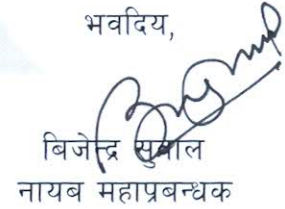 भवदिय,
बिजेन्द्र सुवाल
नायब महाप्रबन्धक